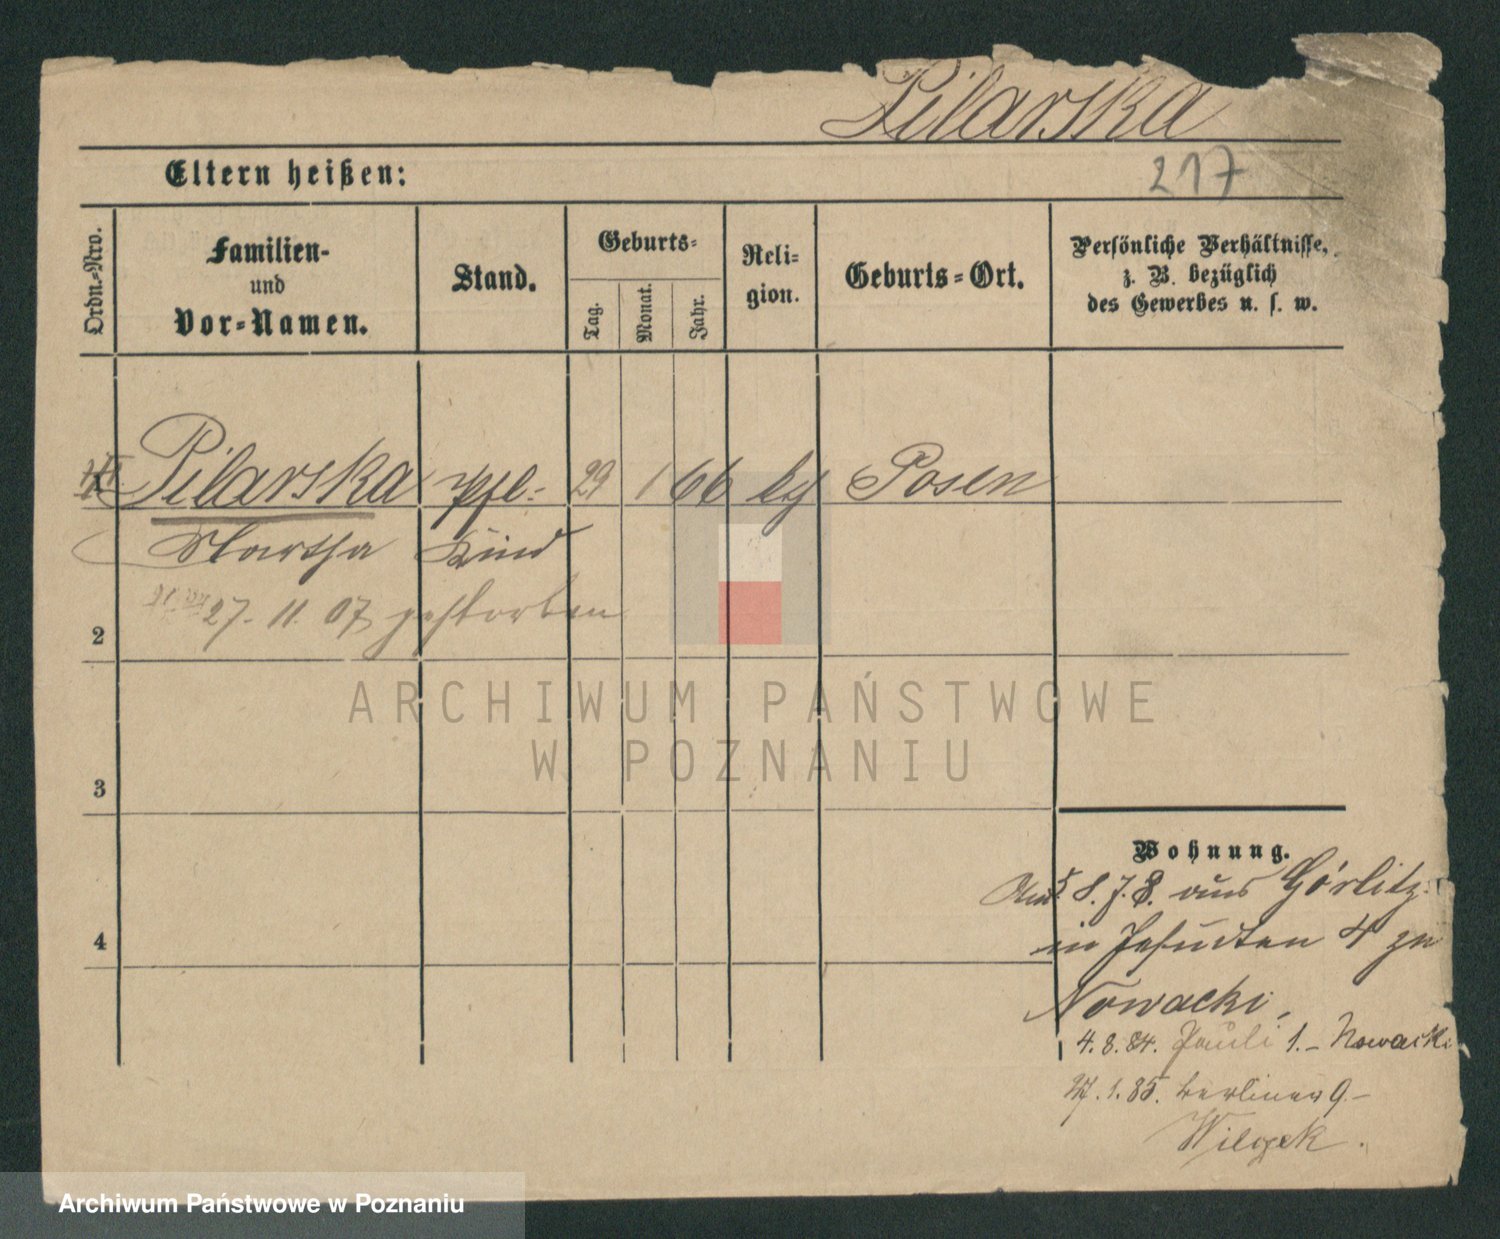 Pilarska
217
Eltern heißen:
Ordn.-Nro.
Familien-
und
Vor-Namen.
Stand.
Geburts-
Tag.
Monat.
Jahr.
Reli-
gion.
Geburts-Ort.
Persönliche Verhältnisse,
z. B. bezüglich
des Gewerbes u. s. w.
Pilarska Pfl- 29 1 66 Posen
Martha Kind
27. 11. 07 gestorben
2
3
4
Wohnung.
8. 7. 8. aus Görlitz
in Jesuiten 4 zu
Nowacki.
4. 8. 84. Pauli 1.- Nowacki
27. 1. 85. Berliner 9.-
Wilczek.
ARCHIWUM PAŃSTWOWE
W POZNANIU
Archiwum Państwowe w Poznaniu